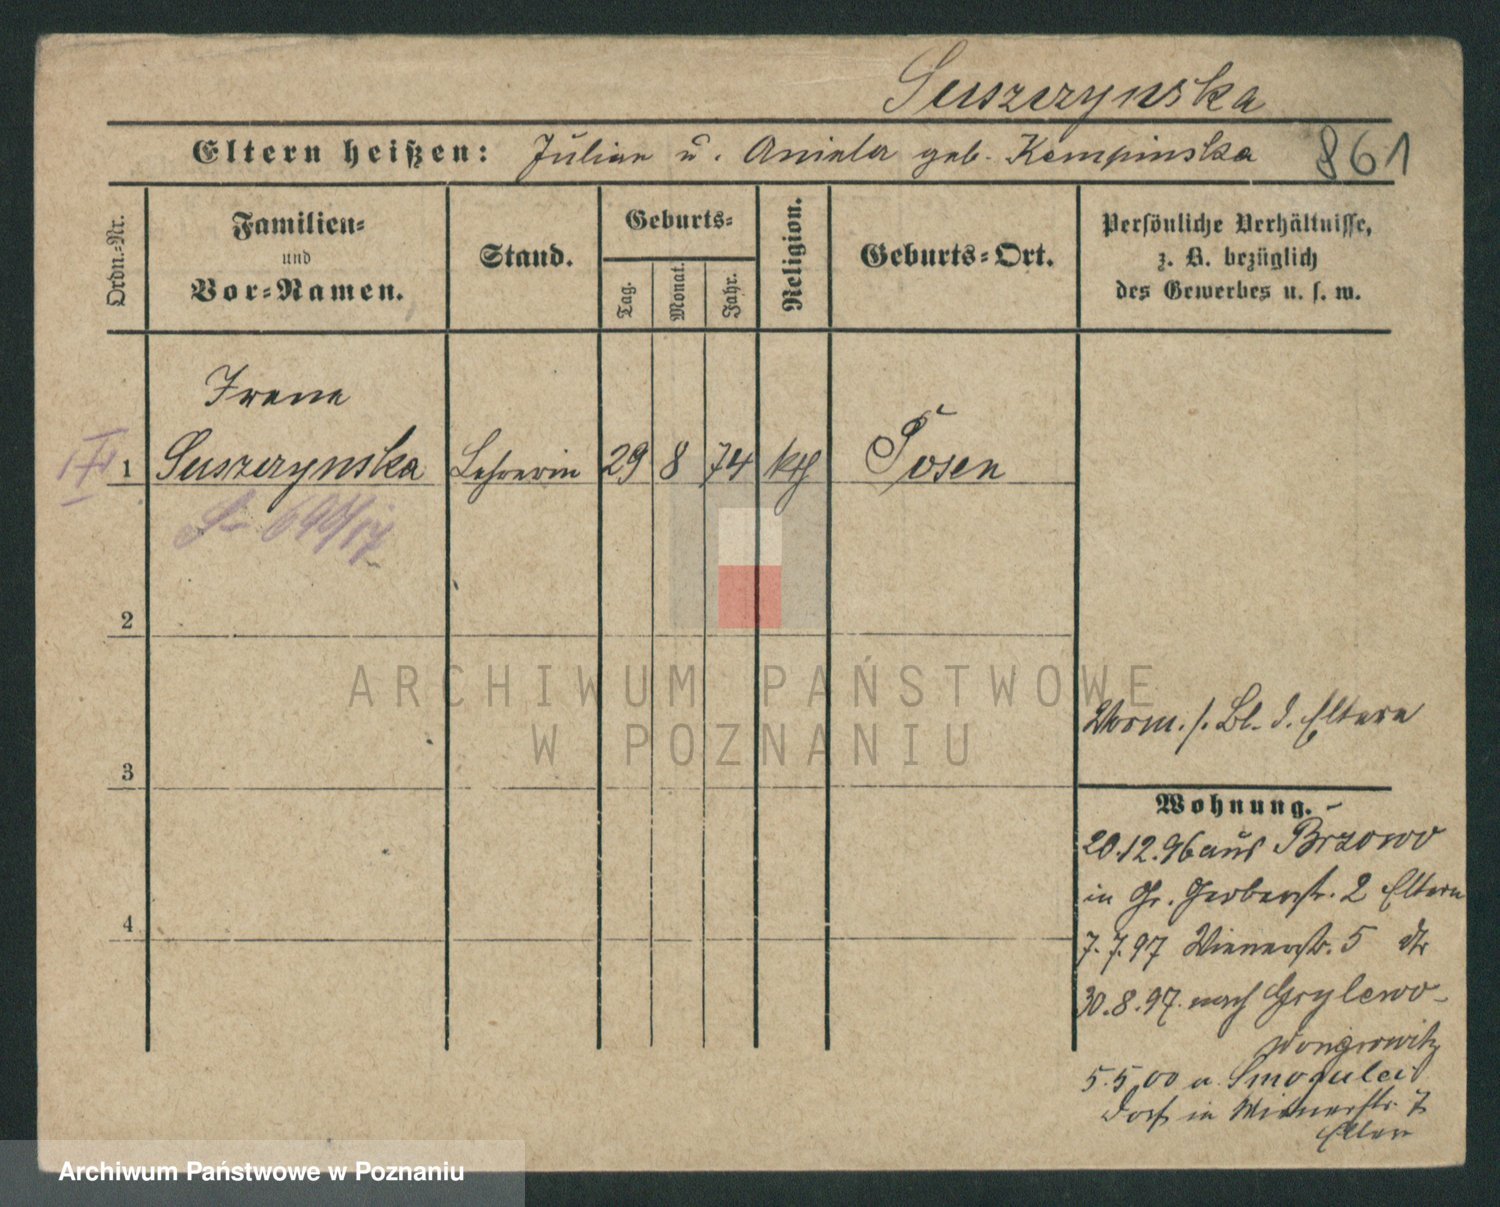 Suszczynska
Eltern heißen: Julian u. Aniela geb. Kempinska
861
Ordn.-Nr.
Familien-
und
Vor-Namen.
Stand.
Geburts-
Tag.
Monat.
Jahr.
Religion.
Geburts-Ort.
Persönliche Verhältnisse,
z. B. bezüglich
des Gewerbes u. s. w.
Irene
1 Suszczynska Lehrerin 29 8 74 kth Posen
2
3
4
Vorm. s. Bl. d. Eltern
Wohnung.
20.12.96 aus Brzowo
in Gr. Gerberstr. 2 Eltern
7.7.97 Wienerstr. 5
30.8.97 nach Grylewo
Wongrowitz
5.5.00 a. Smogulec
Dorf in Wienerstr. 7
Eltern
ARCHIWUM PAŃSTWOWE
W POZNANIU
Archiwum Państwowe w Poznaniu